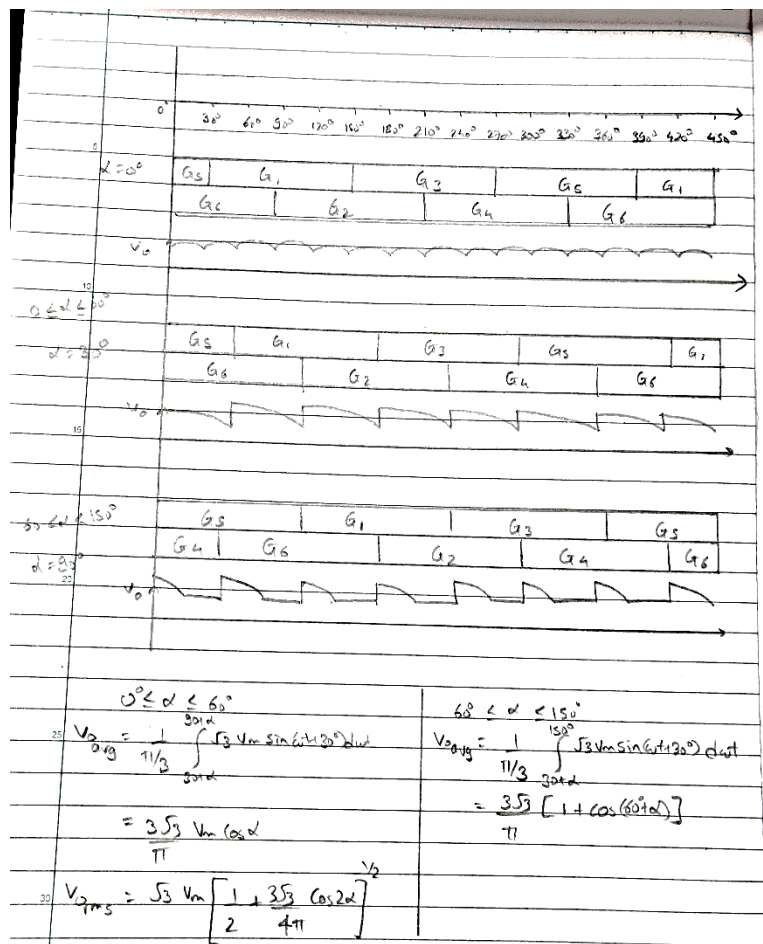 0° 30° 60° 90° 120° 150° 180° 210° 240° 270° 300° 330° 360° 390° 420° 450°
5
α=0° G5 G1 G3 G5 G1
G6 G2 G4 G6
Vo
10
0≤α≤60°
α=30° G5 G1 G3 G5 G1
G6 G2 G4 G6
Vo
15
60≤α≤150° G5 G1 G3 G5
α=90° G4 G6 G2 G4 G6
20
Vo
0°≤α≤60°
25 Vo avg = 1/(π/3) ∫_{30+α}^{90+α} √3 Vm sin(ωt+30°) dωt
= 3√3/π Vm cosα
30 Vo rms = √3 Vm [1/2 + 3√3/4π cos2α]^{1/2}
60° ≤ α ≤ 150°
Vo avg = 1/(π/3) ∫_{30+α}^{150°} √3 Vm sin(ωt+30°) dωt
= 3√3/π [1+cos(60°+α)]